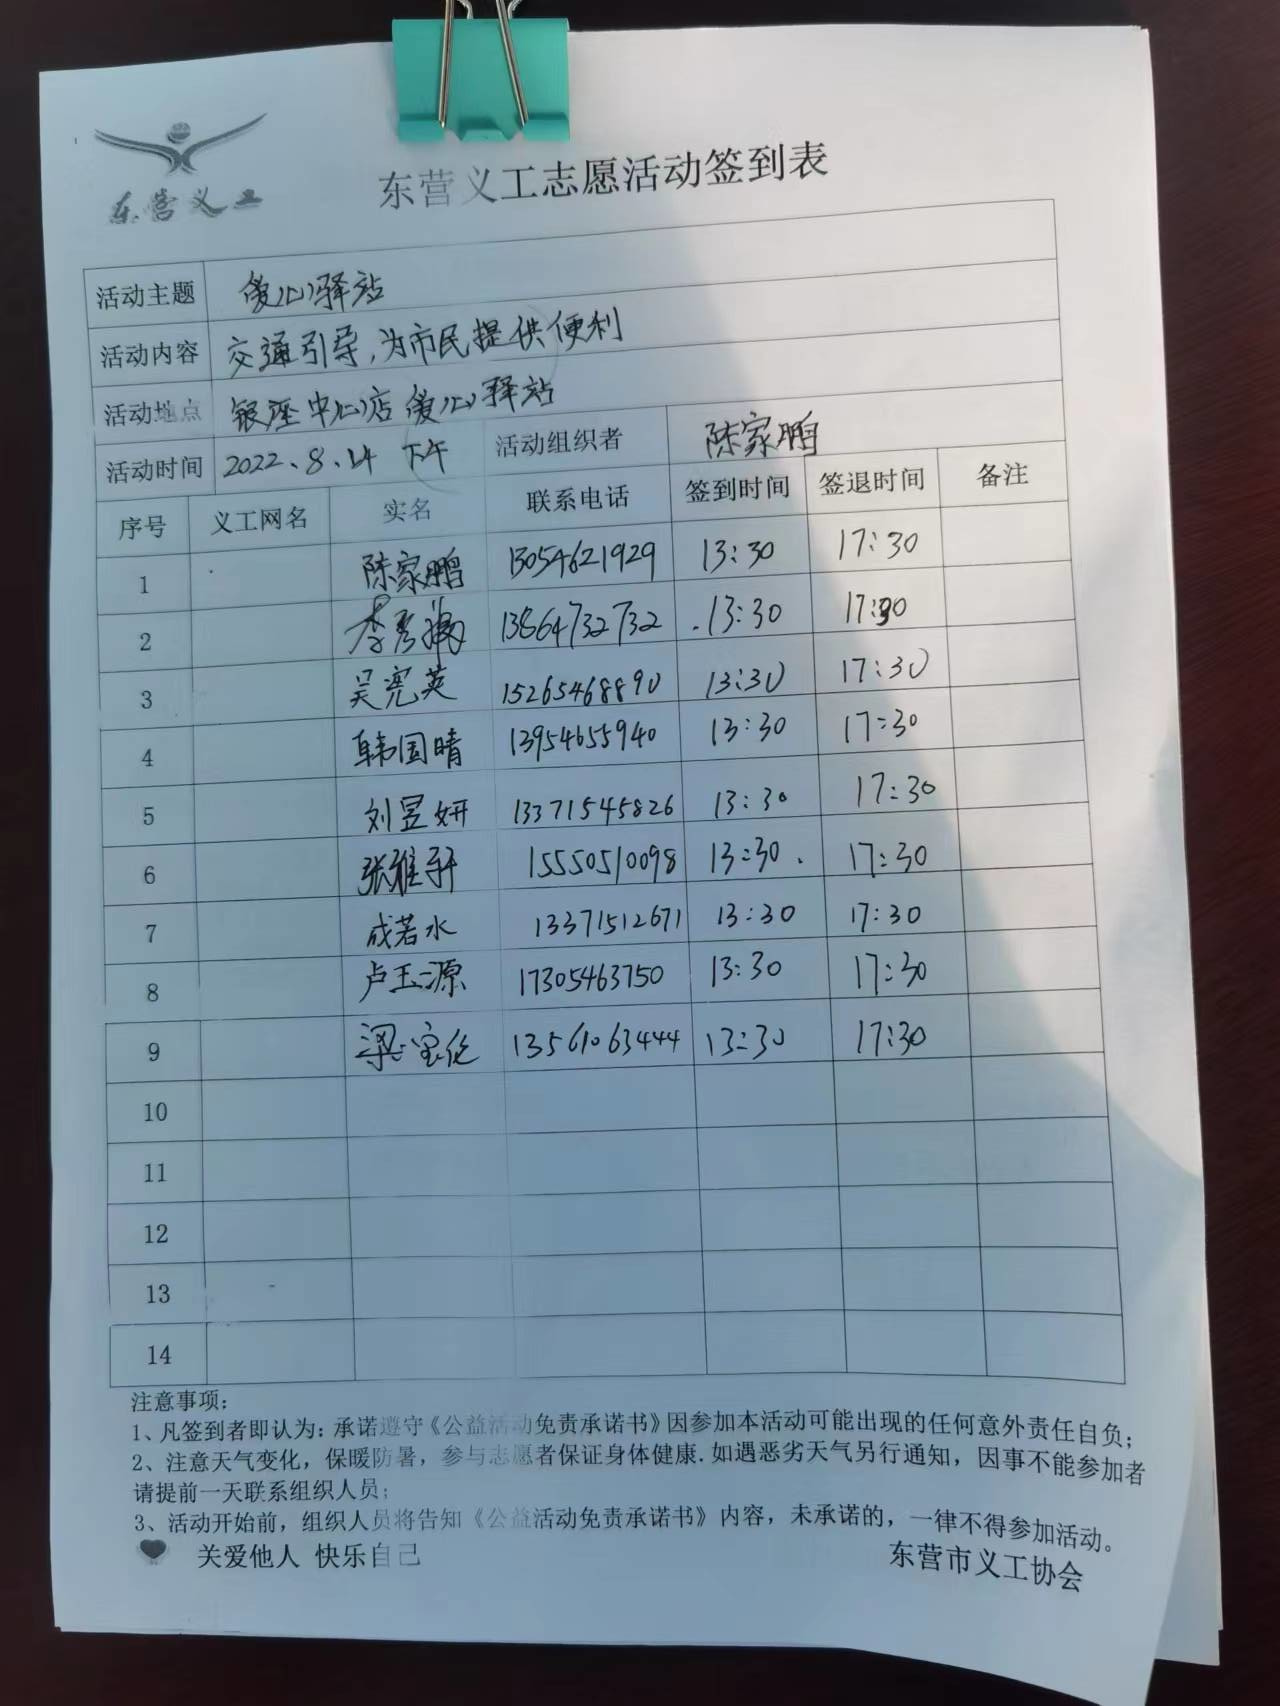 东营义工
东营义工志愿活动签到表
活动主题 爱心驿站
活动内容 交通引导,为市民提供便利
活动地点 银座中心店爱心驿站
活动时间 2022.8.14 下午 活动组织者 陈家鹏
序号 义工网名 实名 联系电话 签到时间 签退时间 备注
1 陈家鹏 13054621929 13:30 17:30
2 李秀 13864732732 13:30 17:30
3 吴宪英 15265468890 13:30 17:30
4 韩国晴 13954655940 13:30 17:30
5 刘昱妍 13371545826 13:30 17:30
6 张雅轩 15550510098 13:30 17:30
7 成若水 13371512671 13:30 17:30
8 卢玉源 17305463750 13:30 17:30
9 梁宝伦 13561063444 13:30 17:30
10
11
12
13
14
注意事项:
1、凡签到者即认为:承诺遵守《公益活动免责承诺书》因参加本活动可能出现的任何意外责任自负;
2、注意天气变化,保暖防暑,参与志愿者保证身体健康.如遇恶劣天气另行通知,因事不能参加者
请提前一天联系组织人员;
3、活动开始前,组织人员将告知《公益活动免责承诺书》内容,未承诺的,一律不得参加活动。
关爱他人 快乐自己 东营市义工协会